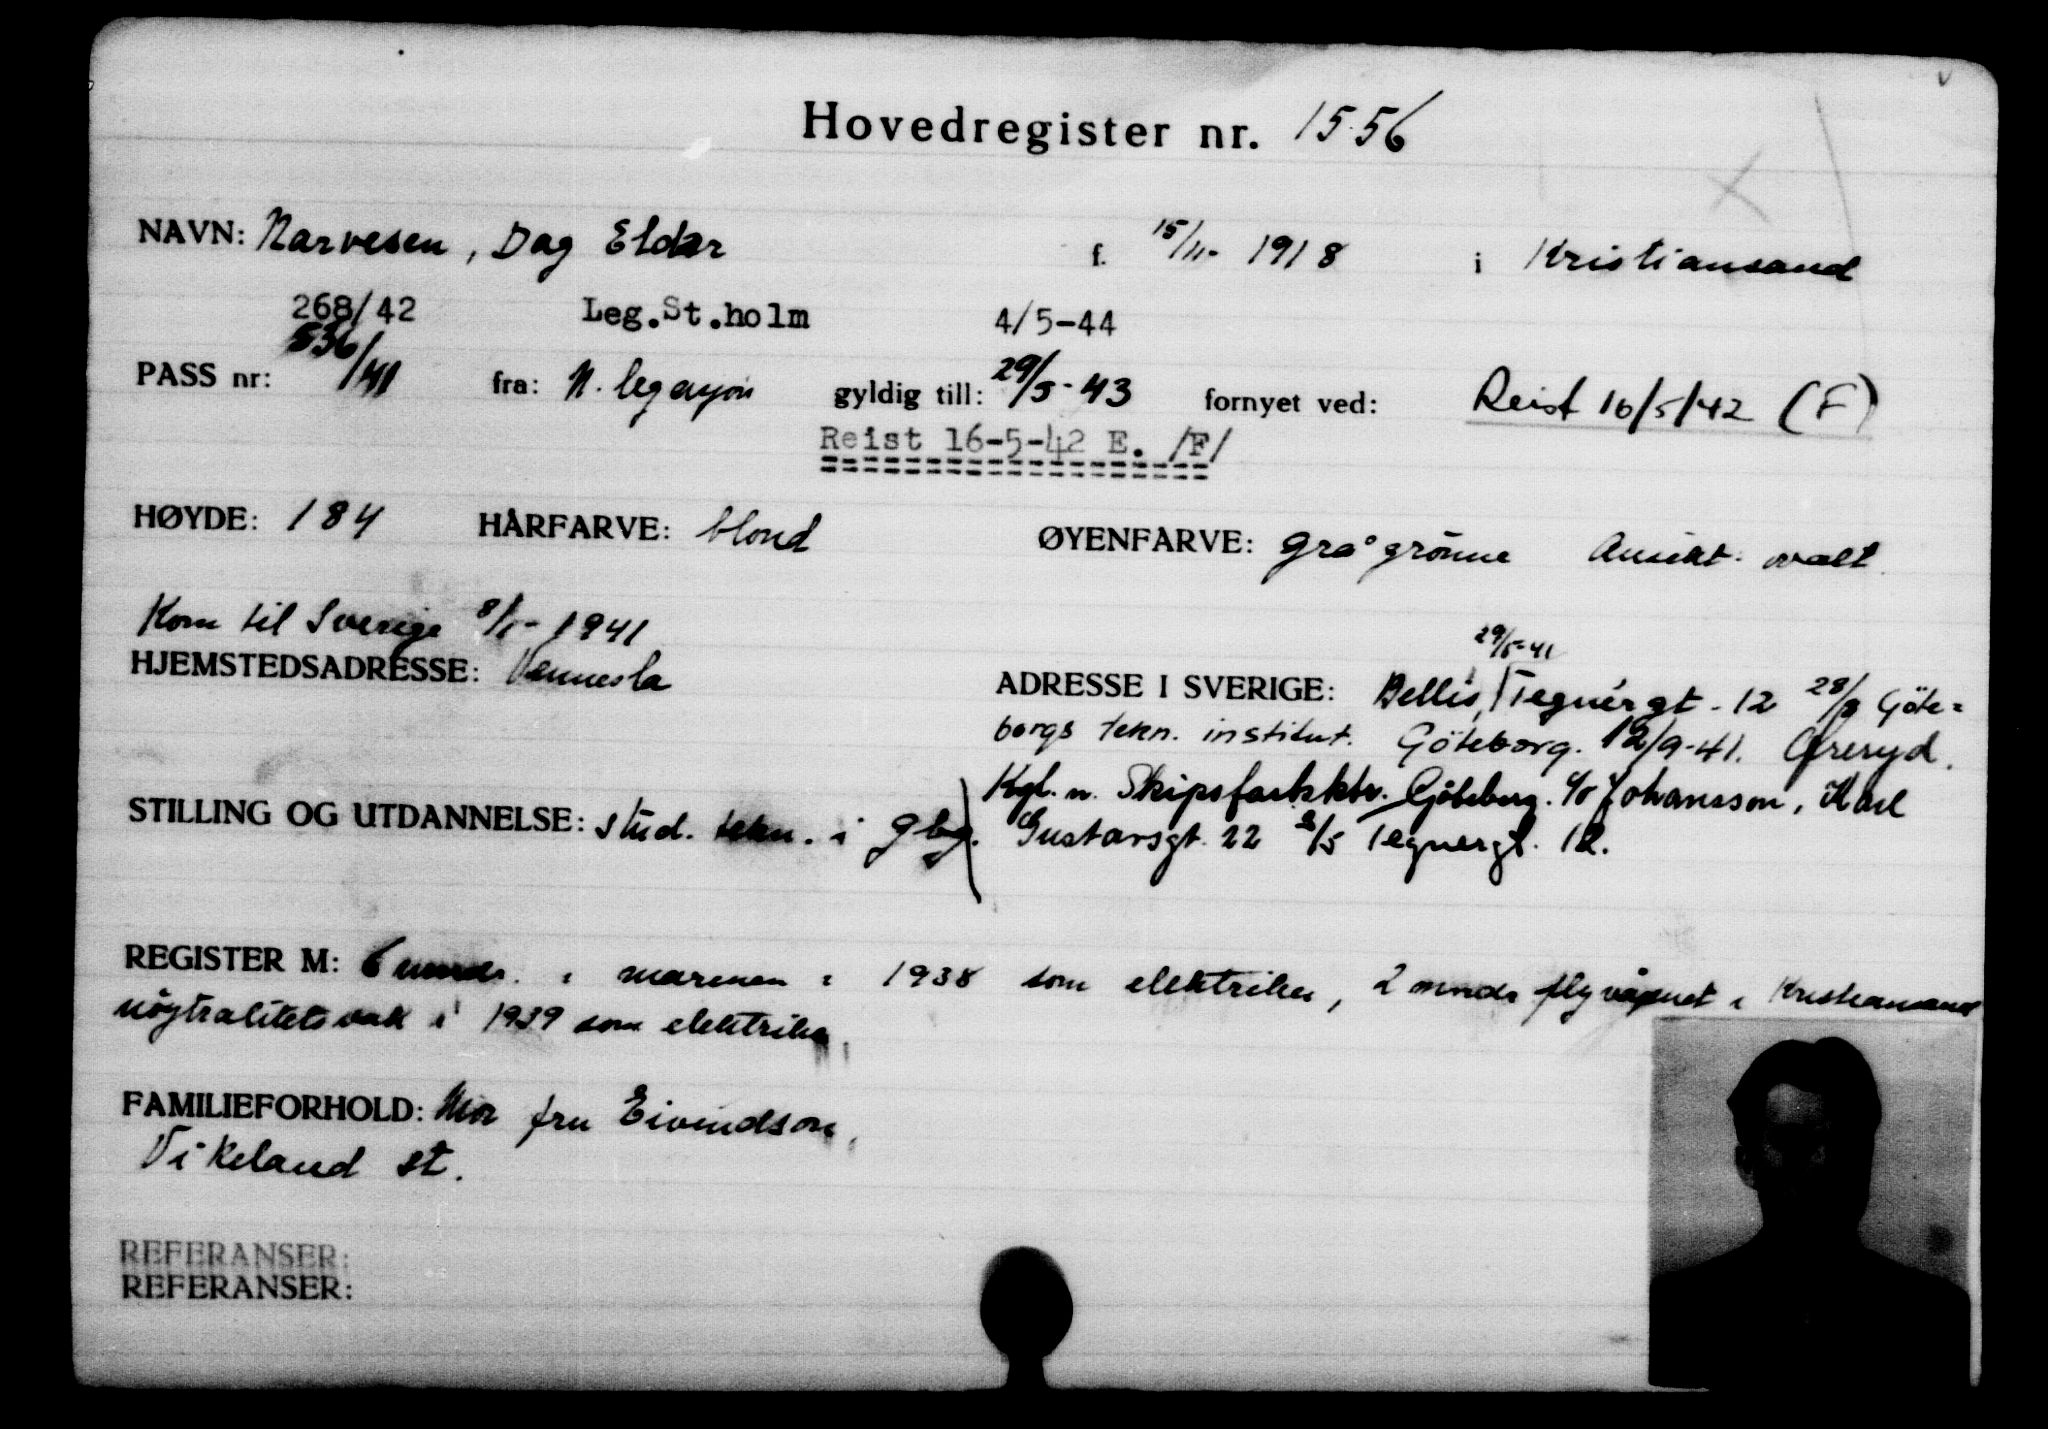 Hovedregister nr. 1556
NAVN: Narvesen, Dag Eldar f. 15/11- 1918 i Kristiansand
268/42 Leg.St.holm 4/5-44
PASS nr: 536/41 fra: N. legasjon gyldig till: 29/5-43 fornyet ved: Reist 16/5/42 (F)
Reist 16-5-42 E. /F/
HØYDE: 184 HÅRFARVE: blond ØYENFARVE: grå grönne Ansikt: ovalt
Kom til Sverige 8/1- 1941
HJEMSTEDSADRESSE: Vennesla
29/5-41
ADRESSE I SVERIGE: Tegnérgt. 12 28/8 Göte=
borgs tekn. institut. Göteborg. 12/9-41. Öreryd.
Kgl. n. Skipsfartsktr. Göteborg. c/o Johansson, Karl
STILLING OG UTDANNELSE: stud. tekn. i gbg. Gustavsgt. 22 2/5 Tegnergt. 12.
REGISTER M: 6 mndr. i marinen i 1938 som elektriker, 2 mndr flyvåpnet i Kristiansand
nöytralitetsvakt i 1939 som elektriker.
FAMILIEFORHOLD: Mor fru Eivindson,
Vikeland st.
REFERANSER:
REFERANSER: